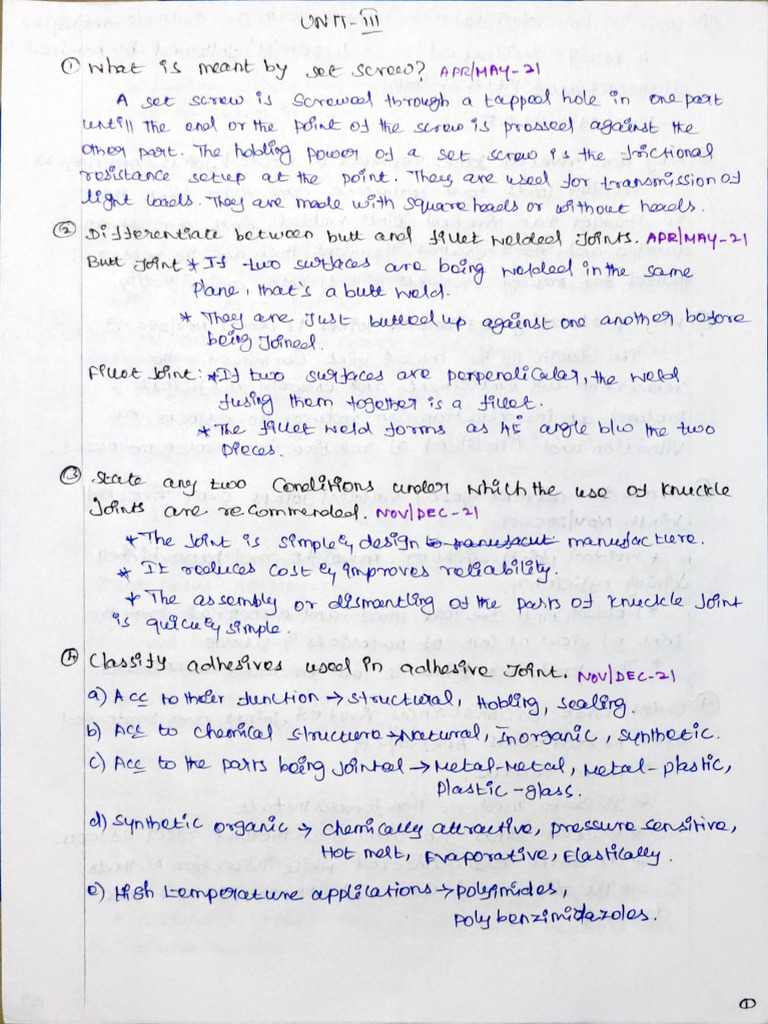 UNIT-III
① What is meant by set screw? APR/MAY-21
A set screw is screwed through a tapped hole in one part
untill the end or the point of the screw is pressed against the
other part. The holding power of a set screw is the frictional
resistance setup at the point. They are used for transmission of
light loads. They are made with square heads or without heads.
② Differentiate between butt and fillet welded joints. APR/MAY-21
Butt Joint * If two surfaces are being welded in the same
plane, that's a butt weld.
* They are just butted up against one another before
being joined.
Fillet Joint: * If two surfaces are perpendicular, the weld
fusing them together is a fillet.
* The fillet weld forms as 45° angle b/w the two
pieces.
③ State any two conditions under which the use of knuckle
joints are recommended. NOV/DEC-21
* The joint is simple & design to manufacut manufacture.
* It reduces cost & improves reliability.
* The assembly or dismantling of the parts of knuckle joint
is quick & simple.
④ Classify adhesives used in adhesive joint. NOV/DEC-21
a) Acc to their function → structural, Holding, sealing.
b) Acc to chemical structure → Natural, Inorganic, synthetic.
c) Acc to the parts being jointed → Metal-Metal, Metal-plastic,
Plastic-glass.
d) synthetic organic → chemically attractive, pressure sensitive,
Hot melt, Evaporative, Elastically.
e) High temperature applications → polyimides,
Polybenzimidazoles.
①